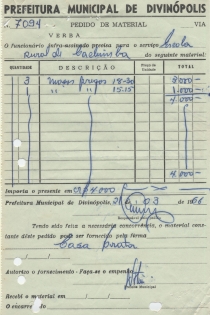 PREFEITURA MUNICIPAL DE DIVINÓPOLIS
N. 7094 PEDIDO DE MATERIAL VIA
VERBA
O funcionário infra-assinado precisa para o serviço Escola
Rural de do seguinte material:
QUANTIDADE DESCRIÇÃO Preço da Unidade TOTAL
3 Maços pregos 18-30 3.000-
1 " " 15.15 1.000-
4.000-
4.000-
Importa o presente em Cr$ 4.000
Prefeitura Municipal de Divinópolis, 21 03 de 1966
Tendo sido feita a necessária concorrência, o material constante dêste pedido pode ser fornecido pela firma
Casa Prata
Autorizo o fornecimento - Faça-se o empenho
Recebi o material em de de
O encarregado